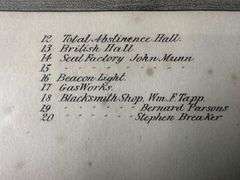 12 Total Abstinence Hall.
13 British Hall.
14 Seal Factory John Munn
15 " " " "
16 Beacon Light.
17 Gas Works.
18 Blacksmith Shop, Wm. F. Tapp.
19 " " Bernard Parsons
20 " " Stephen Breaker